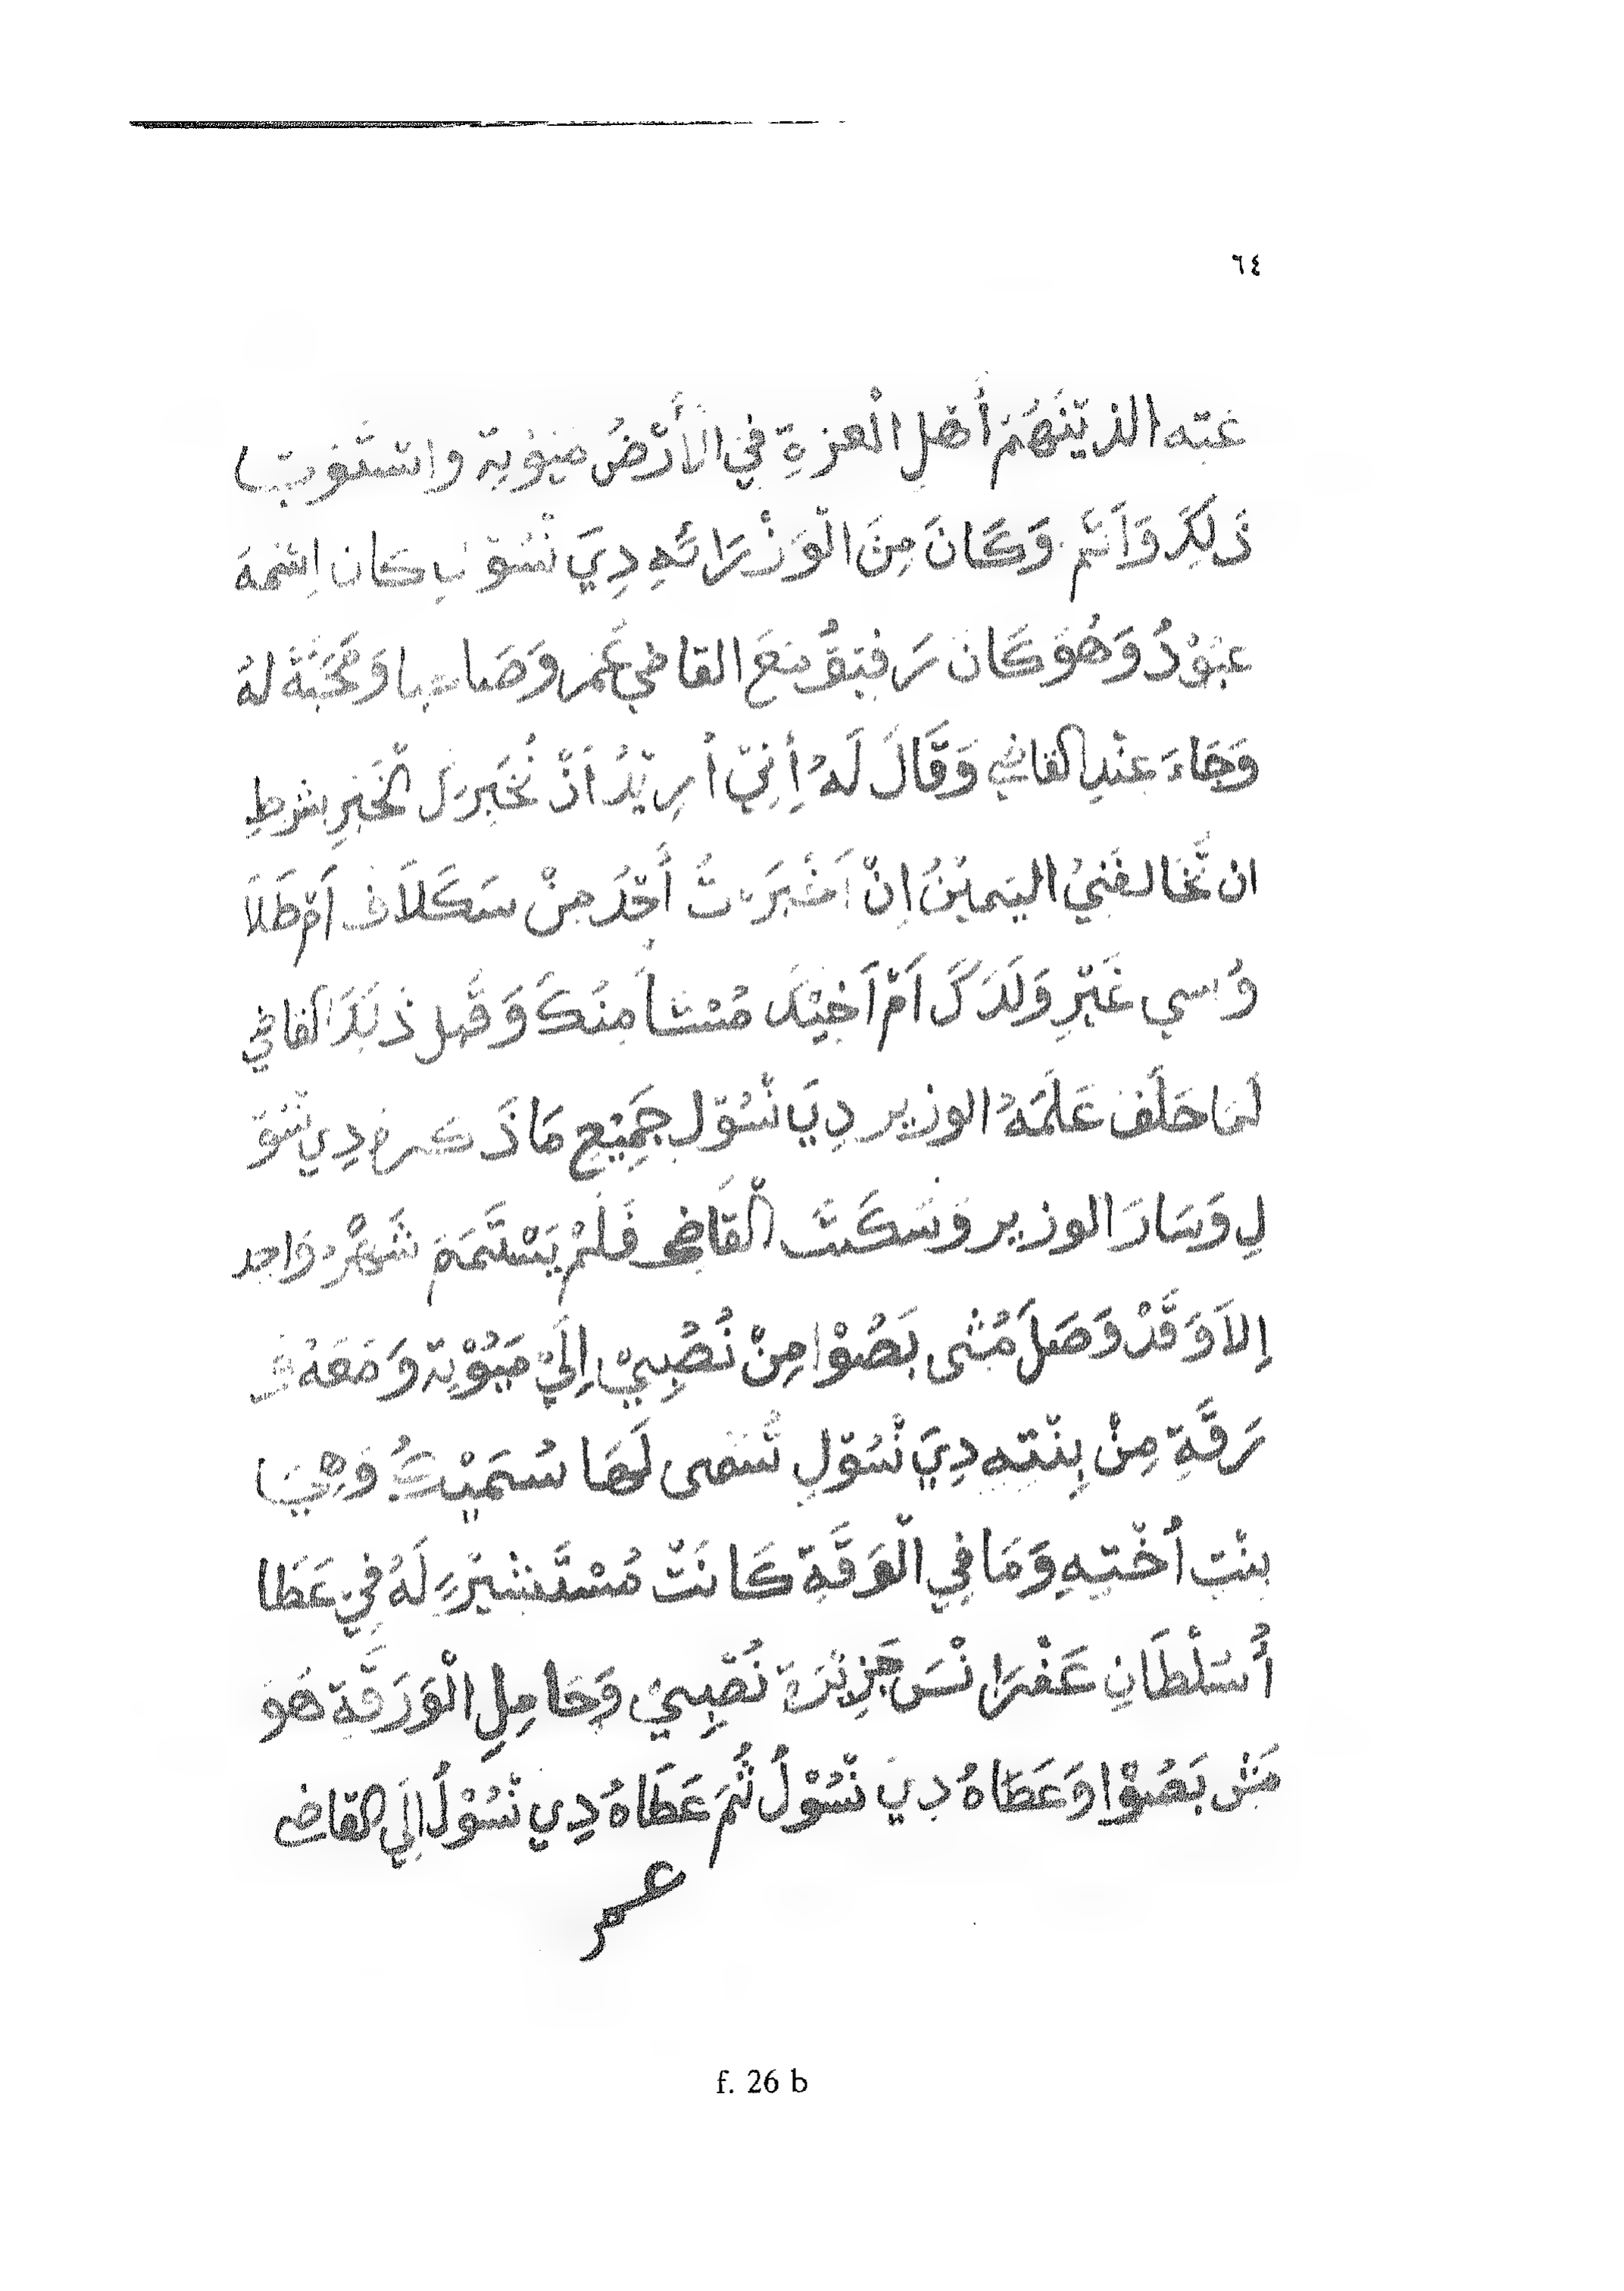 ٦٤
عته الذيْنَهُمْ أَهْلِ الْعزةِ في الأَرْضُ مَيُوْتِة واسْتغوب
ذَلِكَ وَأَتَم وَكَانَ مِنَ الْوَزْرَائَهِ دِيَ نْسُوْ كان اسْمهَ
عبُوْدُ وَهُوَ كَانَ رَفيقُ مَعَ القاضي عُمر وَصَاحبا وَمَحَبَّةَ لهُ
وَجَاءَ عِنْدِ القاضِي وَقَالَ لَهُ إِنِيّ أُرِيْدُ أَنْ نُخَبِرَكَ الْخَبَرِ بشرطِ
ان تَّخَالفَنِيُ اليَميْنُ إِنْ أَخْبَرَتُ أَحَدُ مِنْ سَكَلاَفَ أَمْ طَلاَ
وُسي غَيْرِ وَلَدَكَ أَمْ أَخِيْكَ مُسْتَا مِنكَ وَقَبل ذَلكَ القاضِي
لَمَا حَلَفَ عَلَمَهُ الوزير دِيَ نْسُوْلِ جَمِيْعِ مَا ذَكرهُ دِي نْسُوْ
لِ وَسَارَ الوزير وَسَكَتَ الْقَاضِي فَلَمْ يَسْتَمَمَ شَهْرُ وَاحِد
إِلاَ وَقَدْ وَصَلَ مُشى بَصُوْا مِنْ نُصُبِيْ إِلَيْ مَيُوْتِة وَمَعَهُ وَ
رَقَّةِ مِنْ بِنْتِه دِيَ نْسُوْلِ تُسَمى لَهَا سُمَيْتُ وَهِيَ
بِنْتِ أُخْتِهِ وَمَا فِي الْوَرَقَّةِ كَانَتْ مُسْتَشيْرَةٍ لَهُ فِيْ عَطَا
أُسُلْطَانِ عَفْرَانْسَ جَزِيْرَة نُصِبيْ وَحَامِلِ الْوَرَقَّةِ هُوَ
مَشى بَصُوْا وَعَطَاهُ دِيَ نْسُوْلُ ثُمَ عَطَاهُ دِي نْسُوْلُ الَي القاضي
عمر
f. 26 b